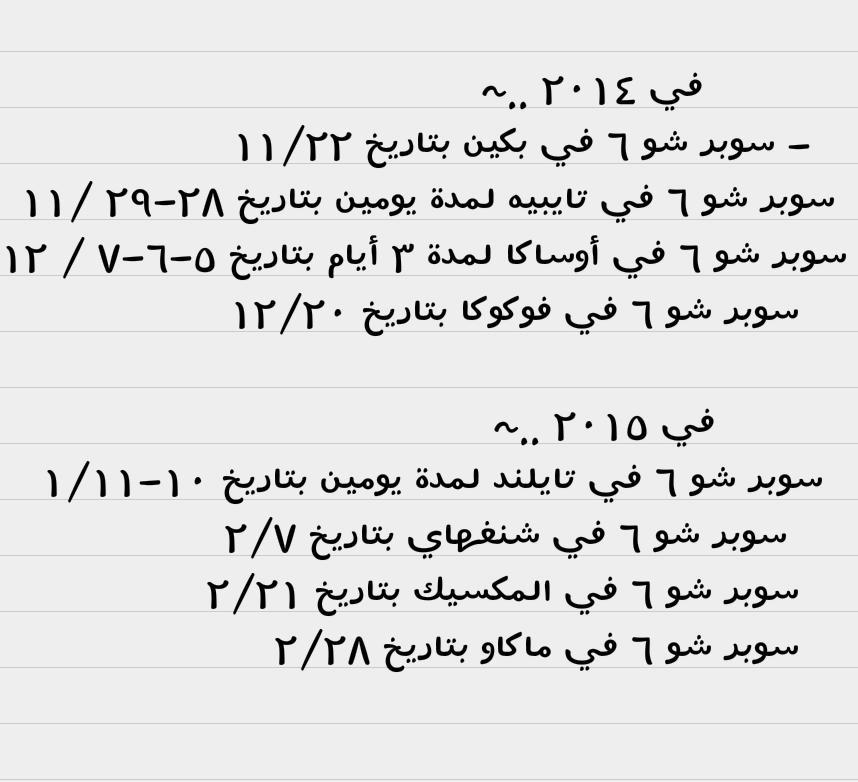 في ٢٠١٤ ..~
– سوبر شو ٦ في بكين بتاريخ ١١/٢٢
سوبر شو ٦ في تايبيه لمدة يومين بتاريخ ٢٨-٢٩ /١١
سوبر شو ٦ في أوساكا لمدة ٣ أيام بتاريخ ٥-٦-٧ / ١٢
سوبر شو ٦ في فوكوكا بتاريخ ١٢/٢٠
في ٢٠١٥ ..~
سوبر شو ٦ في تايلند لمدة يومين بتاريخ ١٠-١/١١
سوبر شو ٦ في شنغهاي بتاريخ ٢/٧
سوبر شو ٦ في المكسيك بتاريخ ٢/٢١
سوبر شو ٦ في ماكاو بتاريخ ٢/٢٨